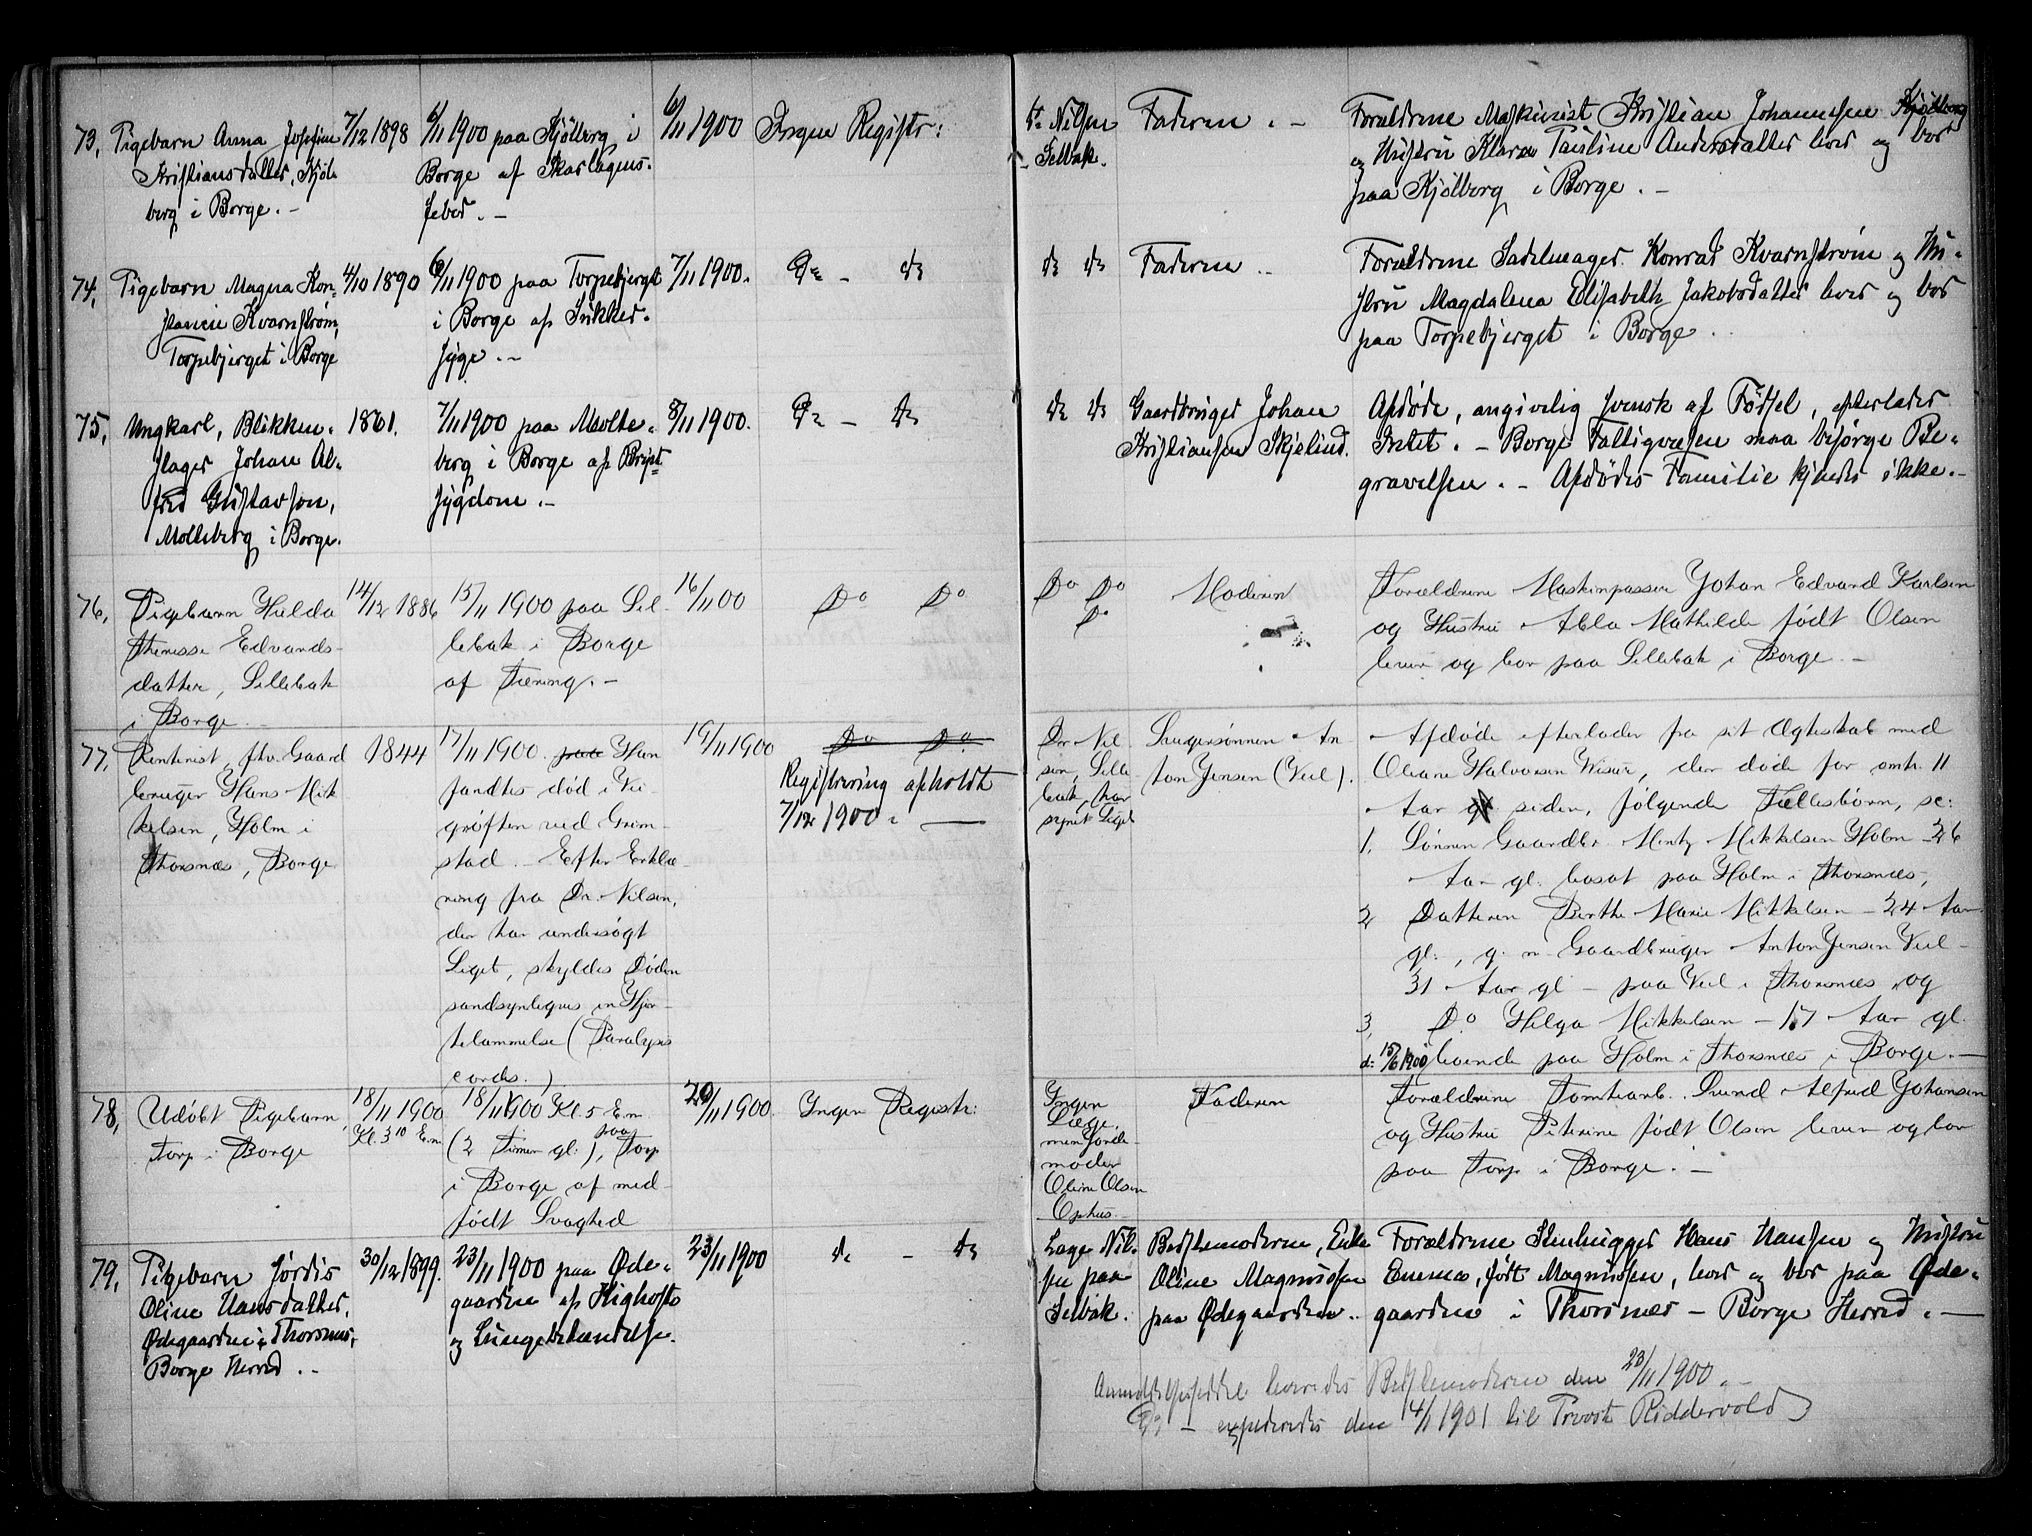 73, Pigebarn Anna Josefine
Kristiansdatter, Kjøl-
berg i Borge. -
7/12 1898
6/11 1900 paa Kjølberg i
Borge af Skarlagens-
feber. -
6/11 1900
Ingen Registr:
Dr. Nilsen
Sellebak.
Faderen. -
Forældrene Maskinist Kristian Johannesen Kjølberg
og Hustru Klara Pauline Andersdatter lever og bor
paa Kjølberg i Borge. -
74, Pigebarn Magna Kon-
stancie Kvarnstrøm,
Torpebjerget i Borge
4/10 1890
6/11 1900 paa Torpebjerget
i Borge af Sukker-
syge. -
7/11 1900.
Do - do
do do
Faderen -
Forældrene Sadelmager Konrad Kvarnstrøm og Hu-
stru Magdalena Elisabeth Jakobsdatter lever og bor
paa Torpebjerget i Borge.
75, Ungkarl, Blikken-
slager Johan Al-
fred Gustavson,
Molteberg i Borge.
1861.
7/11 1900 paa Molte-
berg i Borge af Bryst-
sygdom. -
8/11 1900.
Do - do
do do
Gaardbruger Johan
Kristiansen Skjelind.
Afdøde, angivelig svensk af Fødsel, efterlader
Intet. - Borge Fattigvæsen maa besørge Be-
gravelsen. - Afdødes Familie kjendes ikke. -
76, Pigebarn Hulda
Theresse Edvards-
datter, Sellebak
i Borge -
14/12 1886
15/11 1900 paa Sel-
lebak i Borge
af Tæring. -
16/11 00
Do Do
Do Do
Do
Moderen
Forældrene Maskinpasser Johan Edvard Karlsen
og Hustru Abla Mathilde født Olsen
lever og bor paa Sellebak i Borge. -
77, Rentenist, fhv. Gaard
bruger Hans Mik
kelsen, Holm i
Thorsnæs, Borge
1844
17/11 1900. paa Han
fandtes død i Vei
grøften ved Grim-
stad. - Efter Erklæ-
ring fra Dr. Nilsen,
der har undersøgt
Liget, skyldes Døden
sandsynligvis en Hjer-
telammelse (Paralysis
cordis.)
19/11 1900
Do Do
Registrering afholdt
7/12 1900. -
Dr. Nil
sen, Selle
bak, har
synet Liget
Svigersønnen An
ton Jensen (Veel).
Afdøde efterlader fra sit Ægteskab med
Oleane Halvorsen, der døde for omtr. 11
Aar siden, følgende Fællesbørn, se:
1, Sønnen Gaardbr. Mikkelsen Holm - 26
Aar gl. bosat paa Holm i Thorsnæs,
2 Datteren Berthe Marie Mikkelsen - 24 Aar
gl., g. m. Gaardbruger Anton Jensen Veel -
31 Aar gl - paa Veel i Thorsnæs og
3, Do Helga Mikkelsen - 17 Aar gl.
d: 15/6 1900 boende paa Holm i Thorsnæs i Borge. -
78, Udøbt Pigebarn,
Torp i Borge
18/11 1900
Kl. 3 10 Em.
18/11 1900 Kl 5 Em
(2 Timer gl:), paa Torp
i Borge af med-
født Svaghed
20/11 1900.
Ingen Registr:
Ingen
Læge,
men Jorde-
moder
Oline Olsen
Ophus. -
Faderen
Forældrene Tomtearb. Svend Alfred Johansen
og Hustru Peterine født Olsen lever og bor
paa Torp i Borge. -
79, Pigebarn Jørdis
Oline Hansdatter,
Ødegaarden i Thorsnæs,
Borge Herred. -
30/12 1899.
23/11 1900 paa Øde-
gaarden af Kighoste
og Lungebetændelse.
23/11 1900
do - do
Læge Nil-
sen paa
Selbak.
Bedstemoderen, Enke
Oline Magnussen
paa Ødegaarden.
Forældrene Stenhugger Hans Hansen og Hustru
Emma, født Magnussen, lever og bor paa Øde-
gaarden i Thorsnæs - Borge Herred. -
Anmeldelsesseddel leveredes Bedstemoderen den 23/11 1900. -
Do - expederedes den 14/1 1901 til Provst Riddervold